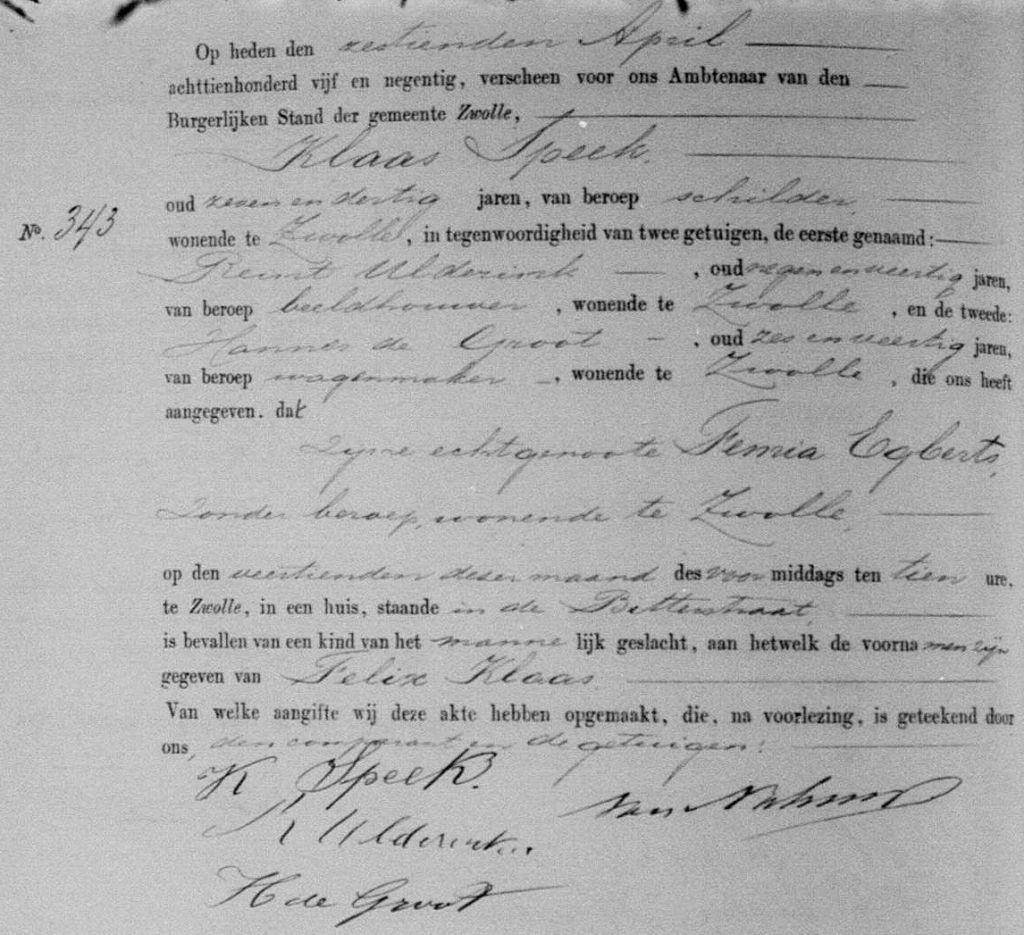 Op heden den zestienden April
achttienhonderd vijf en negentig, verscheen voor ons Ambtenaar van den
Burgerlijken Stand der gemeente Zwolle,
Klaas Speek.
oud zeven en dertig jaren, van beroep schilder,
No. 343
wonende te Zwolle, in tegenwoordigheid van twee getuigen, de eerste genaamd:
Reint Ulderink, oud negen en veertig jaren,
van beroep beeldhouwer, wonende te Zwolle, en de tweede:
Hannes de Groot, oud zes en veertig jaren,
van beroep wagenmaker, wonende te Zwolle, die ons heeft
aangegeven. dat
zijne echtgenoote Femia Egberts,
zonder beroep, wonende te Zwolle,
op den veertienden dezer maand des voor middags ten tien ure,
te Zwolle, in een huis, staande in de Bitterstraat,
is bevallen van een kind van het manne lijk geslacht, aan hetwelk de voorna men zijn
gegeven van Felix Klaas.
Van welke aangifte wij deze akte hebben opgemaakt, die, na voorlezing, is geteekend door
ons, den comparant en de getuigen.
K Speek.
R Ulderink.
H de Groot